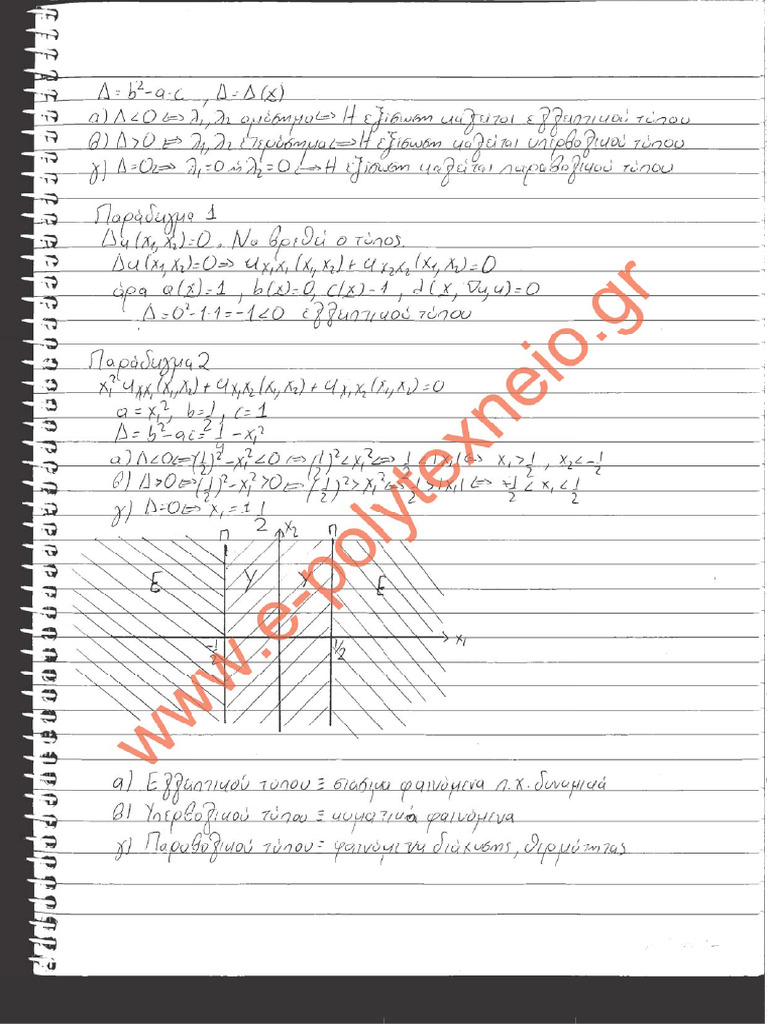 Δ=b²-a·c , Δ=Δ(x)
α) Δ<0 ⇔ λ₁,λ₂ ομόσημα ⇔ Η εξίσωση καλείται ελλειπτικού τύπου
β) Δ>0 ⇔ λ₁,λ₂ ετερόσημα ⇔ Η εξίσωση καλείται υπερβολικού τύπου
γ) Δ=0 ⇔ λ₁=0 ή λ₂=0 ⇔ Η εξίσωση καλείται παραβολικού τύπου
Παράδειγμα 1
Δu(x₁,x₂)=0. Να βρεθεί ο τύπος.
Δu(x₁,x₂)=0 ⇒ u_x₁x₁(x₁,x₂)+u_x₂x₂(x₁,x₂)=0
άρα a(x)=1 , b(x)=0, c(x)=1 , d(x, ∇u,u)=0
Δ=0²-1·1=-1<0 ελλειπτικού τύπου
Παράδειγμα 2
x₁²u_x₁x₁(x₁,x₂)+u_x₁x₂(x₁,x₂)+u_x₁x₂(x₁,x₂)=0
a=x₁², b=1/2, c=1
Δ=b²-ac=1/4-x₁²
α) Δ<0 ⇔ (1/2)²-x₁²<0 ⇔ (1/2)²<x₁² ⇔ 1/2<|x₁| ⇔ x₁>1/2 , x₂<-1/2
β) Δ>0 ⇔ (1/2)²-x₁²>0 ⇔ (1/2)²>x₁² ⇔ 1/2>|x₁| ⇔ -1/2<x₁<1/2
γ) Δ=0 ⇔ x₁=±1/2
Π x₂ Π
E Y Y E
-1/2 1/2 x₁
α) Ελλειπτικού τύπου ≡ στάσιμα φαινόμενα π.χ. δυναμικά
β) Υπερβολικού τύπου ≡ κυματικά φαινόμενα
γ) Παραβολικού τύπου ≡ φαινόμενα διάχυσης, θερμότητας
www.e-polytexneio.gr